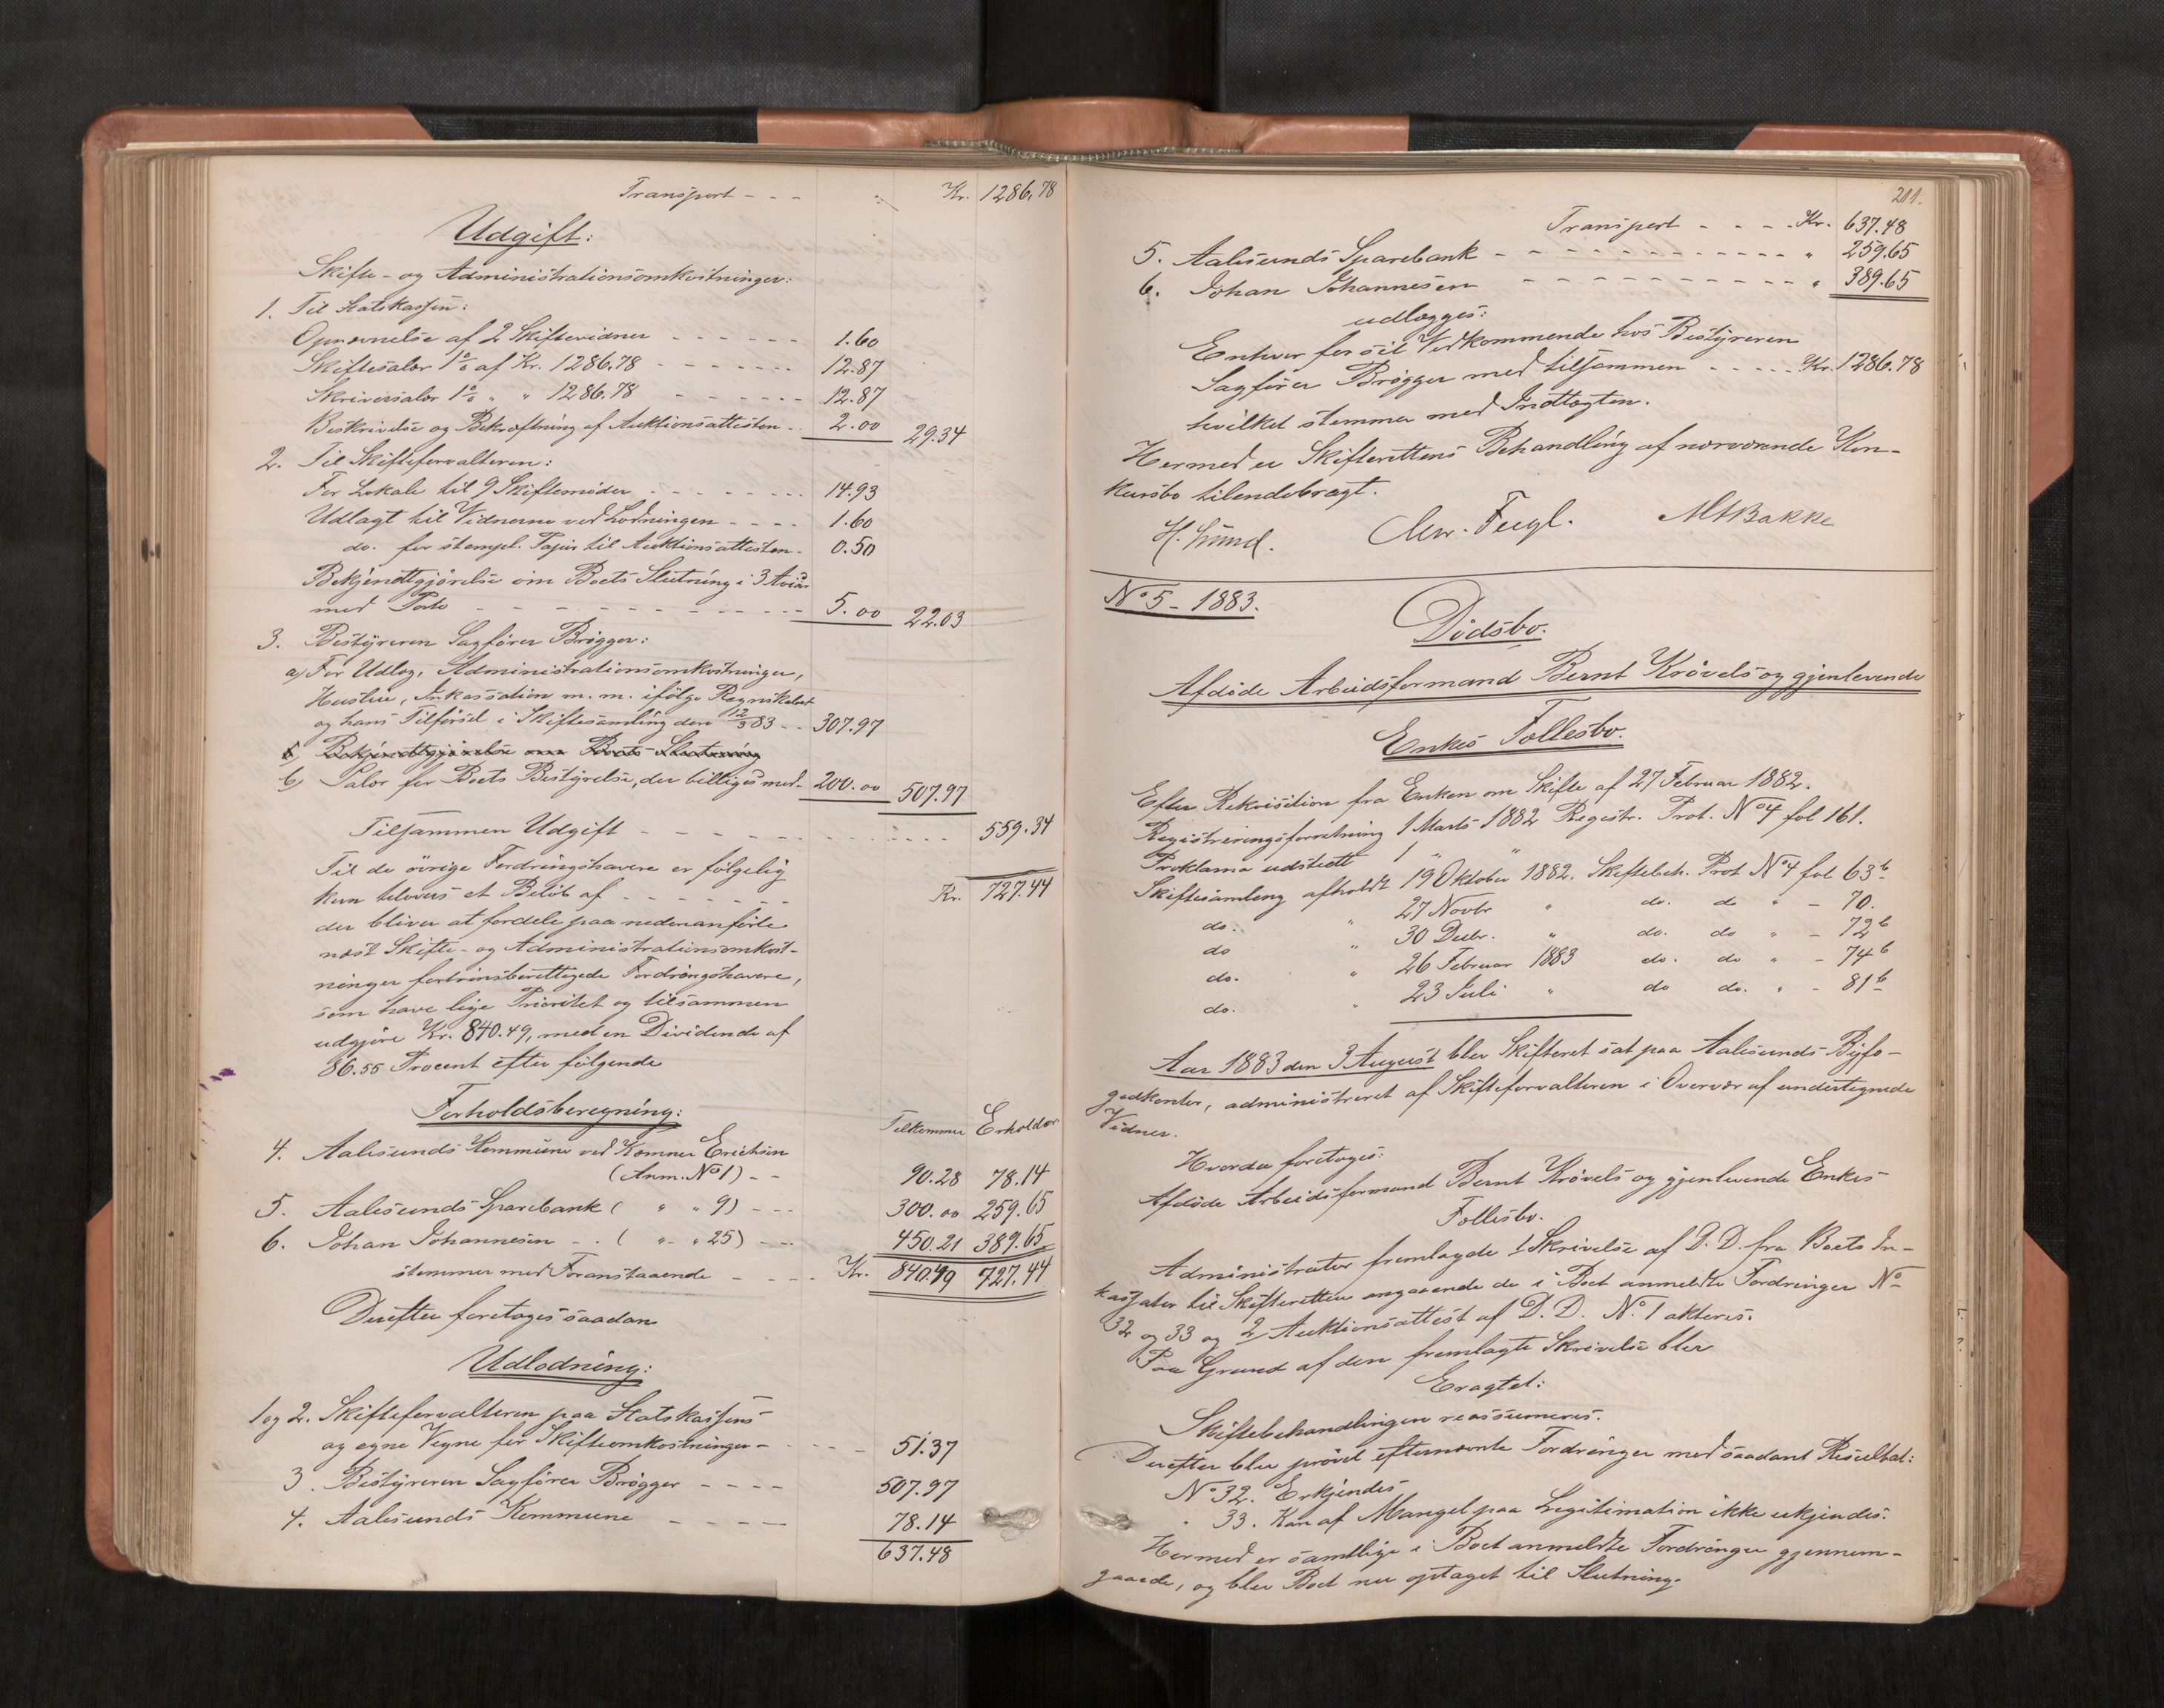 Transport - - - " Kr. 1286.78
Udgift:
Skifte- og Administrationsomkostninger:
1. Til Statskassen:
Opnævnelse af 2 Skiftevidner - - - - - - 1.60
Skiftesalær 1% af Kr. 1286.78 - - - - - - 12.87
Skriversalær 1% " " 1286.78 - - - - - - 12.87
Beskrivelse og Bekræftning af Auktionsattesten - 2.00 29.34
2. Til Skifteforvalteren:
For Lokale til 9 Skiftemøder - - - - - - 14.93
Udlagt til Vidnerne ved Lodningen - - - - 1.60
do. for stempl. Papir til Auktionsattesten - 0.50
Bekjendtgjørelse om Boets Slutning i 3 Aviser
med Porto - - - - - - - - - - 5.00 22.03
3. Bestyreren Sagfører Brøgger:
a) For Udlæg, Administrationsomkostninger,
Husleie, Inkassation m. m. ifølge Regnskabet
og hans Tilførsel i Skiftesamling den 12/3 83 - - 307.97
b) Bekjendtgjørelse om Boets Slutning
b) Salær for Boets Bestyrelse, der billiges med - 200.00 507.97
Tilsammen Udgift - - - - - - - - 559.34
Til de øvrige Fordringshavere er følgelig
kun tilovers et Beløb af - - - - - - - Kr. 727.44
der bliver at fordele paa nedenanførte
næst Skifte- og Administrationsomkost-
ninger fortrinsberettigede Fordringshavere,
som have lige Prioritet og tilsammen
udgjøre Kr. 840.49, med en Dividende af
86.55 Procent efter følgende
Forholdsberegning:
Tilkommer Erholder
4. Aalesunds Kommune ved Kemner Erichsen
(Anm. No 1) - - 90.28 78.14
5. Aalesunds Sparebank ( " " 9) - - - 300.00 259.65
6. Johan Johannesen - - ( " " 25) - - - 450.21 389.65
stemmer med Foranstaaende - - - - Kr. 840.49 727.44
Derefter foretoges saadan
Udlodning:
1 og 2. Skifteforvalteren paa Statskassens
og egne Vegne for Skifteomkostninger - - - - 51.37
3. Bestyreren Sagfører Brøgger - - - - 507.97
4. Aalesunds Kommune - - - - - 78.14
637.48
211.
Transport - - - - Kr. 637.48
5. Aalesunds Sparebank - - - - - - - - - - - " 259.65
6. Johan Johannesen - - - - - - - - - - - " 389.65
udlægges:
Enhver for sit Vedkommende hos Bestyreren
Sagfører Brøgger med tilsammen - - - - - Kr. 1286.78
hvilket stemmer med Indtægten.
Hermed er Skifterettens Behandling af nærværende Kon-
kursbo tilendebragt.
H. Lund. Chr. Fugl. M A Bakke
No 5 - 1883.
Dødsbo.
Afdøde Arbeidsformand Bernt Krøvels og gjenlevende
Enkes Fællesbo.
Efter Rekvisition fra Enken om Skifte af 27 Februar 1882.
Registreringsforretning 1 Marts 1882 Registr. Prot. No 4 fol 161.
Proklama udstedt 1 " "
Skiftesamling afholdt 19 Oktober 1882. Skiftebeh. Prot No 4 fol 63b
do. " 27 Novbr " do. do " - 70.
do " 30 Decbr. " do. do " - 72b
do. " 26 Februar 1883 do. do " - 74b
do. " 23 Juli " do do. " - 81b
Aar 1883 den 3 August blev Skifteret sat paa Aalesunds Byfo-
gedkontor, administreret af Skifteforvalteren i Overvær af undertegnede
Vidner.
Hvorda foretoges:
Afdøde Arbeidsformand Bernt Krøvels og gjenlevende Enkes
Fællesbo.
Administrator fremlagde 1 Skrivelse af D. D. fra Boets In-
kassator til Skifteretten angaaende de i Boet anmeldte Fordringer No
32 og 33 og 2 Auktionsattest af D. D. No. 1 akteres.
Paa Grund af den fremlagte Skrivelse blev
Eragtet:
Skiftebehandlingen reassumeres.
Derefter blev prøvet efternævnte Fordringer med saadant Resultat:
No 32. Erkjendes
" 33. Kan af Mangel paa Legitimation ikke erkjendes.
Hermed er samtlige i Boet anmeldte Fordringer gjennem-
gaaede, og blev Boet nu optaget til Slutning.